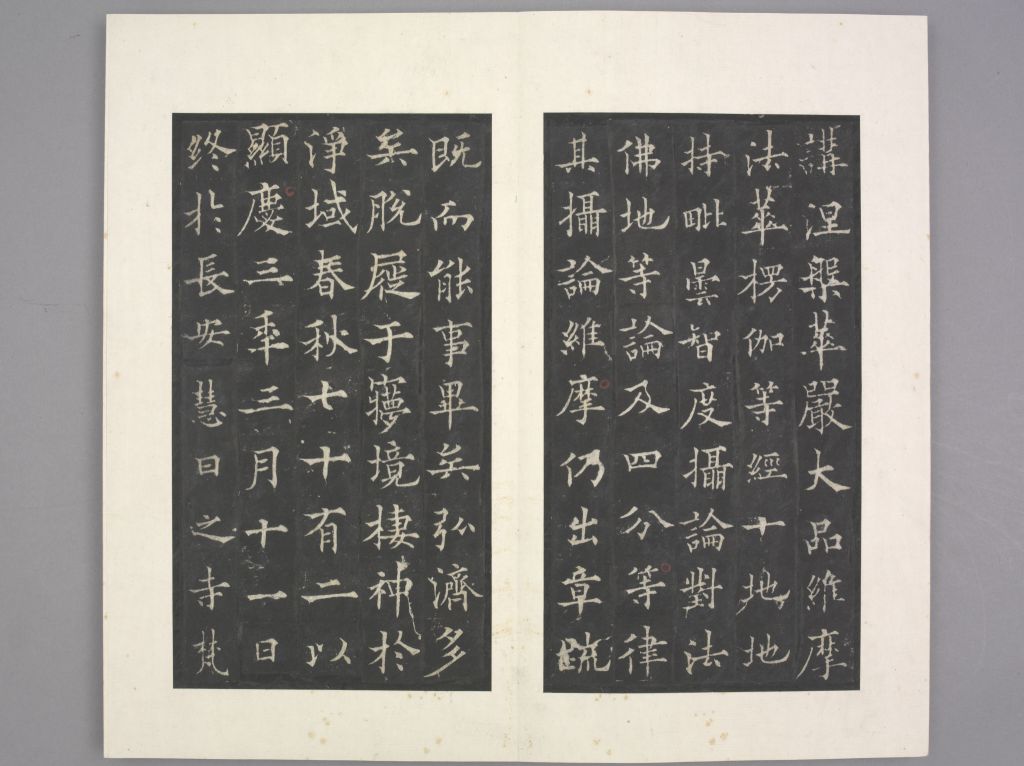 講涅槃華嚴大品維摩
法華楞伽等經十地地
持毗曇智度攝論對法
佛地等論及四分等律
其攝論維摩仍出章疏
既而能事畢矣弘濟多
矣脫屣于寢境棲神於
淨域春秋七十有二以
顯慶三年三月十一日
終於長安慧日之寺梵